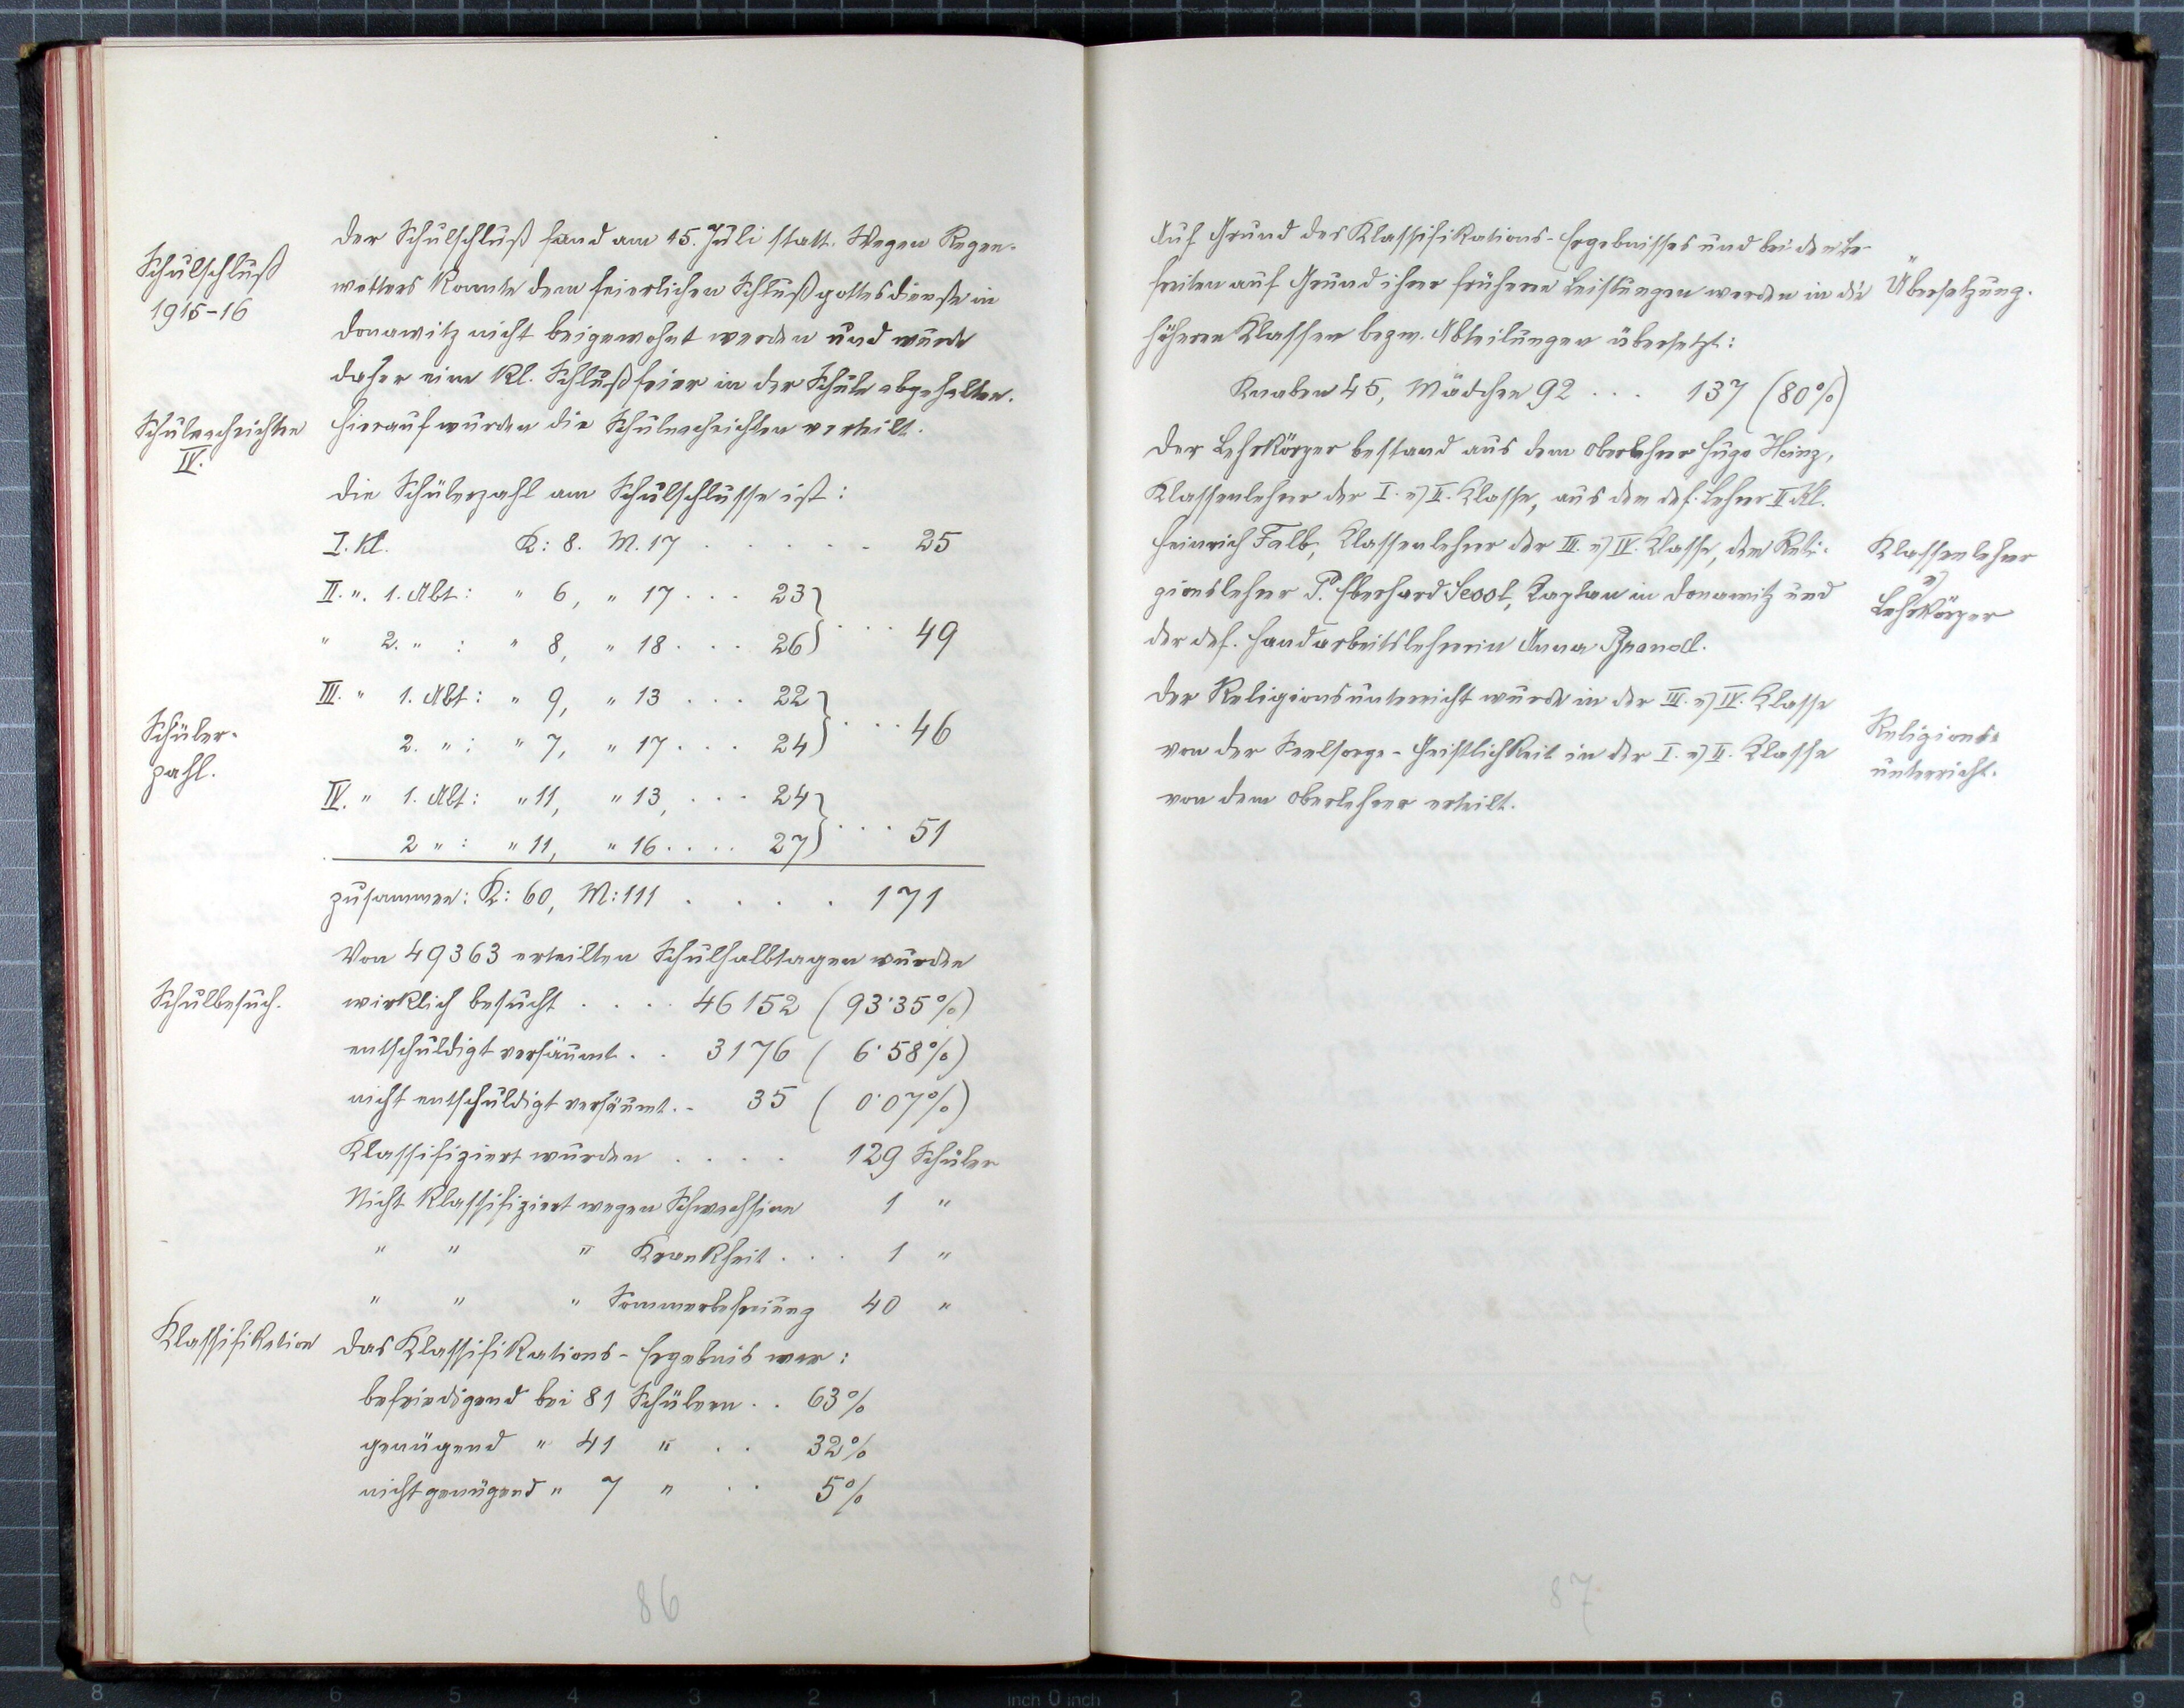 Schulschluß
1915-16
Der Schulschluß fand am 15. Juli statt. Wegen Regen-
wetters konnte dem feierlichen Schlußgottesdienste in
Donawitz nicht beigewohnt werden und wurde
daher eine kl. Schlußfeier in der Schule abgehalten.
Schulnachrichten
IV.
Hierauf wurden die Schulnachrichten verteilt.
Die Schülerzahl am Schulschlusse ist:
I. Kl. K: 8. M. 17 . . . . . . 25
II. ". 1. Abt: " 6, " 17 . . . 23
" 2. " : " 8, " 18 . . . 26 } . . . 49
III. " 1. Abt: " 9, " 13 . . . 22
Schüler-
zahl.
2. " : " 7, " 17 . . . 24 } . . . 46
IV. " 1. Abt: " 11, " 13, . . . 24
2 " : " 11, " 16 . . . . 27 } . . . 51
zusammen: K: 60, M: 111 . . . . 171
Von 49363 erteilten Schulhalbtagen wurden
Schulbesuch.
wirklich besucht . . . . 46152 (93·35%)
entschuldigt versäumt . . 3176 ( 6·58%)
nicht entschuldigt versäumt. - 35 ( 0·07%)
Klassifiziert wurden . . . . 129 Schüler
Nicht klassifiziert wegen Schwachsinn 1 "
" " " Krankheit . . . 1 "
" " " Sommerbefreiung 40 "
Klassifikation
Das Klassifikations-Ergebnis war:
befriedigend bei 81 Schülern . . 63%
genügend " 41 " . . 32%
nicht genügend " 7 " . . 5%
86
Auf Grund des Klassifikations-Ergebnisses und bei den Be-
freiten auf Grund ihrer früheren Leistungen werden in die
Übersetzung.
höheren Klassen bezw. Abteilungen übersetzt:
Knaben 45, Mädchen 92 . . . 137 (80%)
Der Lehrkörper bestand aus dem Oberlehrer Hugo Heinz,
Klassenlehrer der I. u. II. Klasse, aus dem def. Lehrer II Kl.
Heinrich Falb, Klassenlehrer der III. u. IV. Klasse, dem Reli-
Klassenlehrer
u.
Lehrkörper
gionslehrer P. Eberhard Kaplan in Donawitz und
der def. Handarbeitslehrerin Anna Brandl.
Der Religionsunterricht wurde in der III. u. IV. Klasse
Religions-
unterricht.
von der Seelsorge-Geistlichkeit in der I. u. II. Klasse
von dem Oberlehrer erteilt.
87